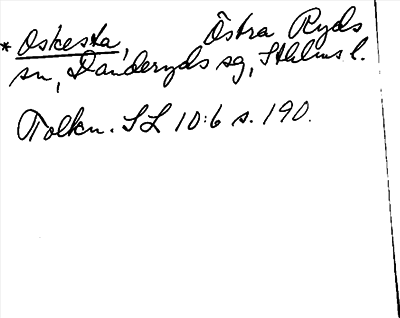 * Oskesta, Östra Ryds
sn, Danderyds sg, Sthlms l.
Tolkn. SL 10:6 s. 190.